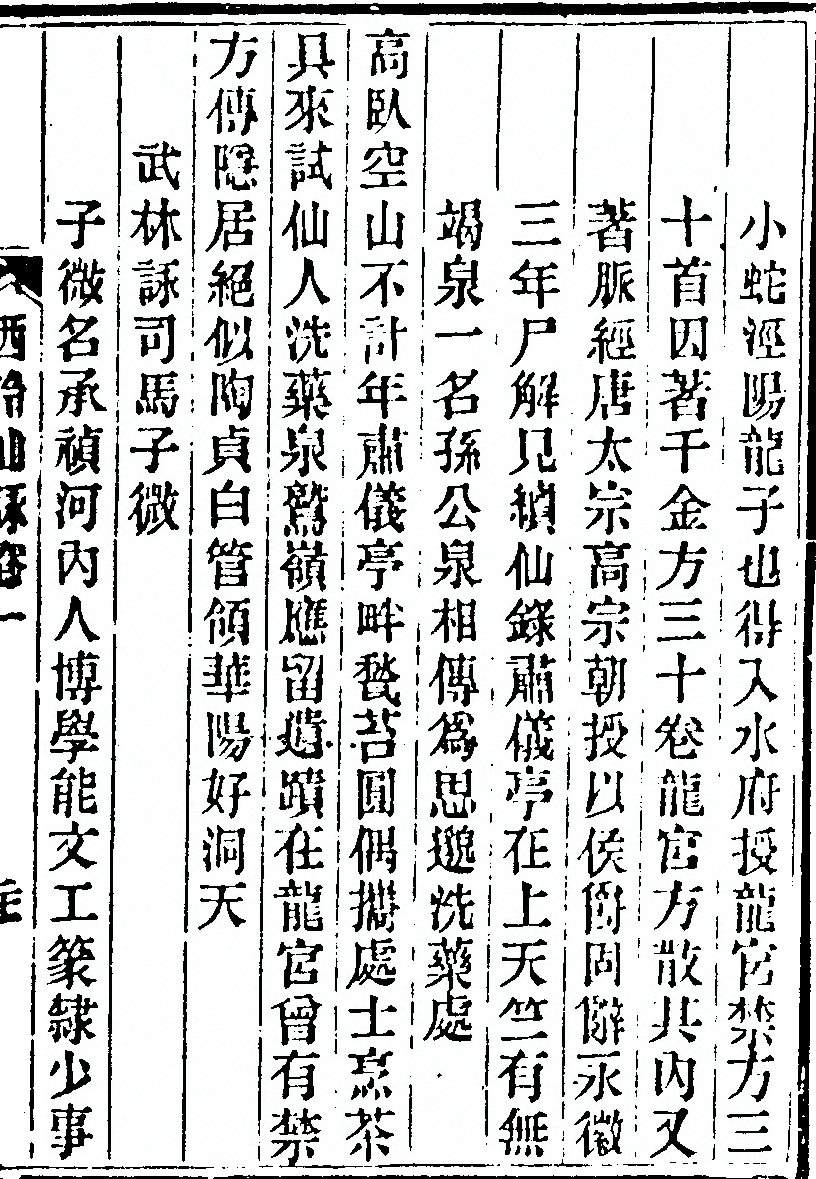 小蛇涇陽龍子也得入水府授龍宮禁方三
十首因著千金方三十卷龍宮方散其內又
著脈經唐太宗高宗朝授以侯爵固辭永徽
三年尸解見續仙錄肅儀亭在上天竺有無
竭泉一名孫公泉相傳爲思邈洗藥處
高臥空山不計年肅儀亭畔甃苔圓偶攜處士烹茶
具來試仙人洗藥泉鷲嶺應留遺蹟在龍宮曾有禁
方傳隱居絕似陶貞白管領華陽好洞天
武林詠司馬子微
子微名承禎河內人博學能文工篆隸少事
西泠仙詠卷一